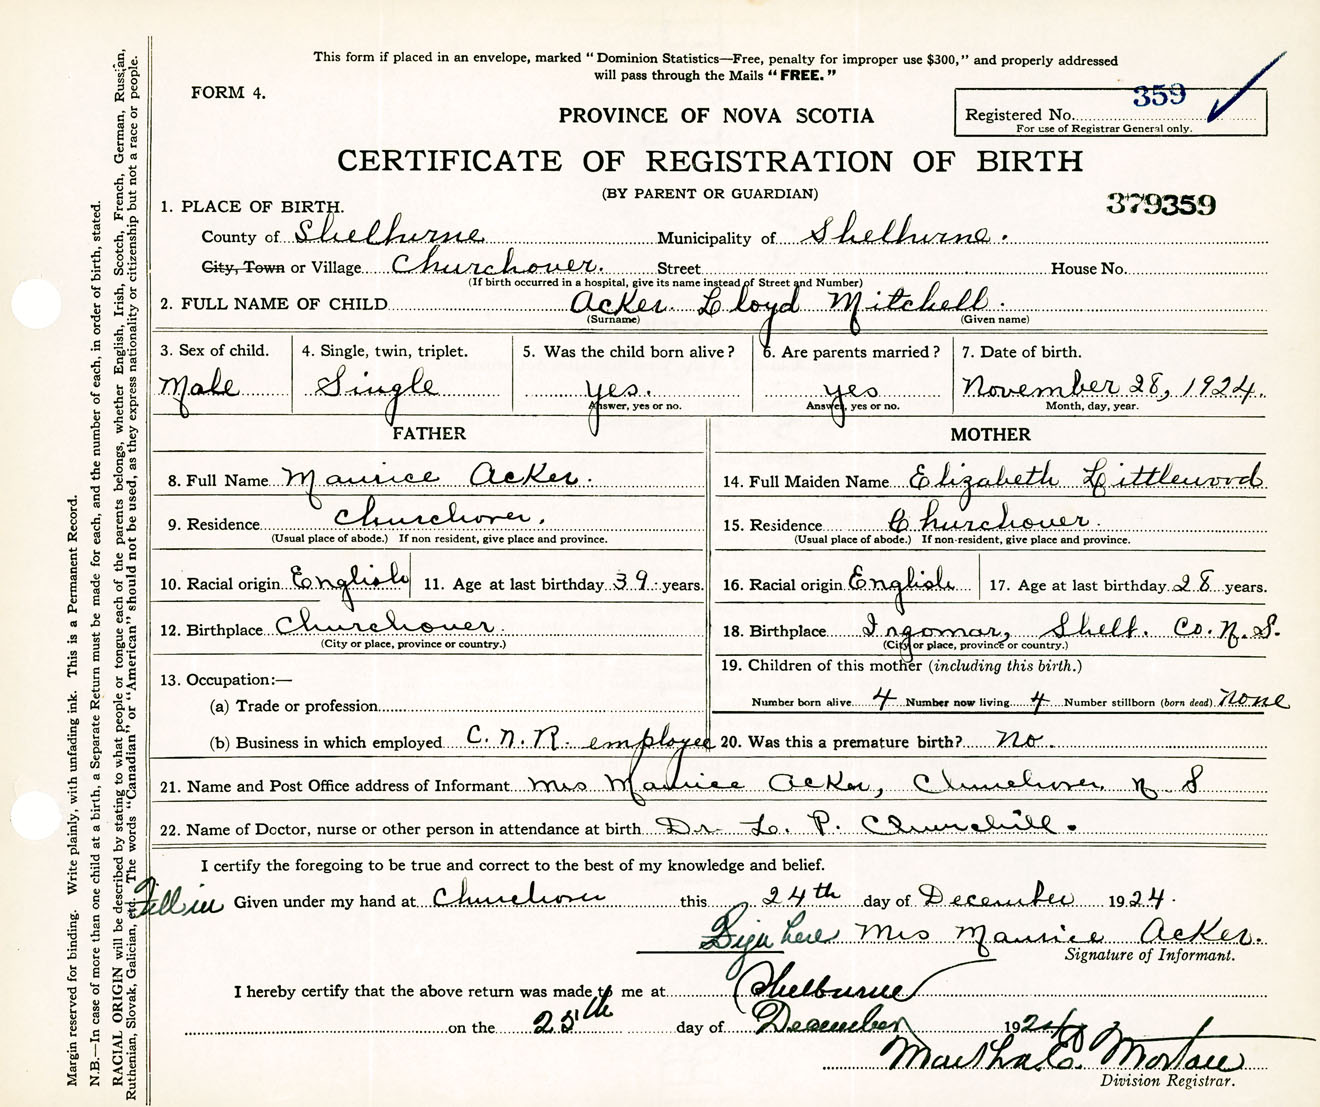 This form if placed in an envelope, marked "Dominion Statistics—Free, penalty for improper use $300," and properly addressed
will pass through the Mails "FREE."
FORM 4.
359
PROVINCE OF NOVA SCOTIA
Registered No.
For use of Registrar General only.
CERTIFICATE OF REGISTRATION OF BIRTH
(BY PARENT OR GUARDIAN)
379359
1. PLACE OF BIRTH.
County of Shelburne Municipality of Shelburne.
City, Town or Village Churchover. Street House No.
(If birth occurred in a hospital, give its name instead of Street and Number)
2. FULL NAME OF CHILD Acker Lloyd Mitchell.
(Surname) (Given name)
3. Sex of child. 4. Single, twin, triplet. 5. Was the child born alive? 6. Are parents married? 7. Date of birth.
Male Single yes. yes November 28, 1924.
Answer, yes or no. Answer, yes or no. Month, day, year.
FATHER MOTHER
8. Full Name Maurice Acker. 14. Full Maiden Name Elizabeth Littlewood
9. Residence Churchover. 15. Residence Churchover.
(Usual place of abode.) If non resident, give place and province. (Usual place of abode.) If non-resident, give place and province.
10. Racial origin English 11. Age at last birthday 39 years. 16. Racial origin English 17. Age at last birthday 28 years.
12. Birthplace Churchover. 18. Birthplace Ingomar, Shelb. Co. N. S.
(City or place, province or country.) (City or place, province or country.)
13. Occupation:— 19. Children of this mother (including this birth.)
(a) Trade or profession Number born alive 4 Number now living 4 Number stillborn (born dead) none
(b) Business in which employed C. N. R. employee 20. Was this a premature birth? No.
21. Name and Post Office address of Informant Mrs Maurice Acker, Churchover N. S
22. Name of Doctor, nurse or other person in attendance at birth Dr. L. P. Churchill.
I certify the foregoing to be true and correct to the best of my knowledge and belief.
Fill in Given under my hand at Churchover this 24th day of December 1924.
Sign here Mrs Maurice Acker.
Signature of Informant.
I hereby certify that the above return was made to me at Shelburne
on the 25th day of December 1924
Martha E. Mortain
Division Registrar.
Margin reserved for binding. Write plainly, with unfading ink. This is a Permanent Record.
N.B.—In case of more than one child at a birth, a Separate Return must be made for each, and the number of each, in order of birth, stated.
RACIAL ORIGIN will be described by stating to what people or tongue each of the parents belongs, whether English, Irish, Scotch, French, German, Russian,
Ruthenian, Slovak, Galician, etc. The words "Canadian" or "American" should not be used, as they express nationality or citizenship but not a race or people.